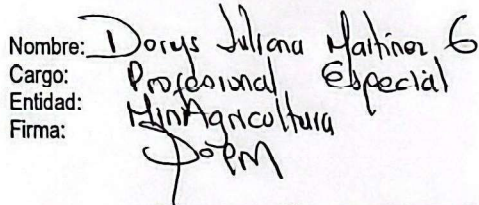 Nombre: Dorys Juliana Martinez G
Cargo: Profesional Especial
Entidad: MinAgricultura
Firma: